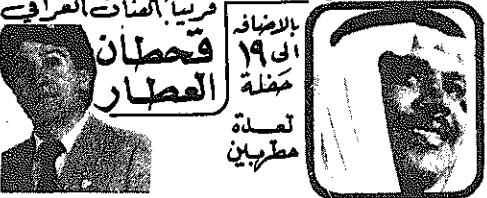 قريبا الفنان العراقي
قحطان
العطار
بالاضافه
الى ١٩
حفلة
لعدة
مطربين